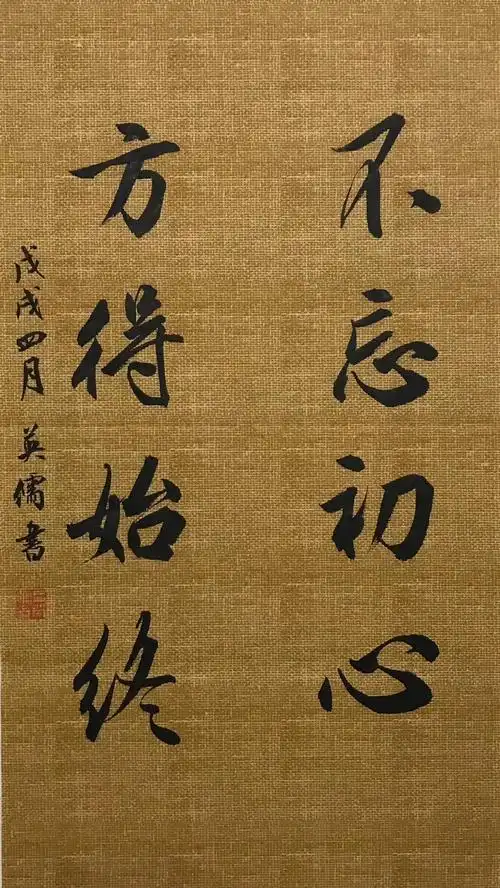 不忘初心
方得始终
戊戌四月 英儒書